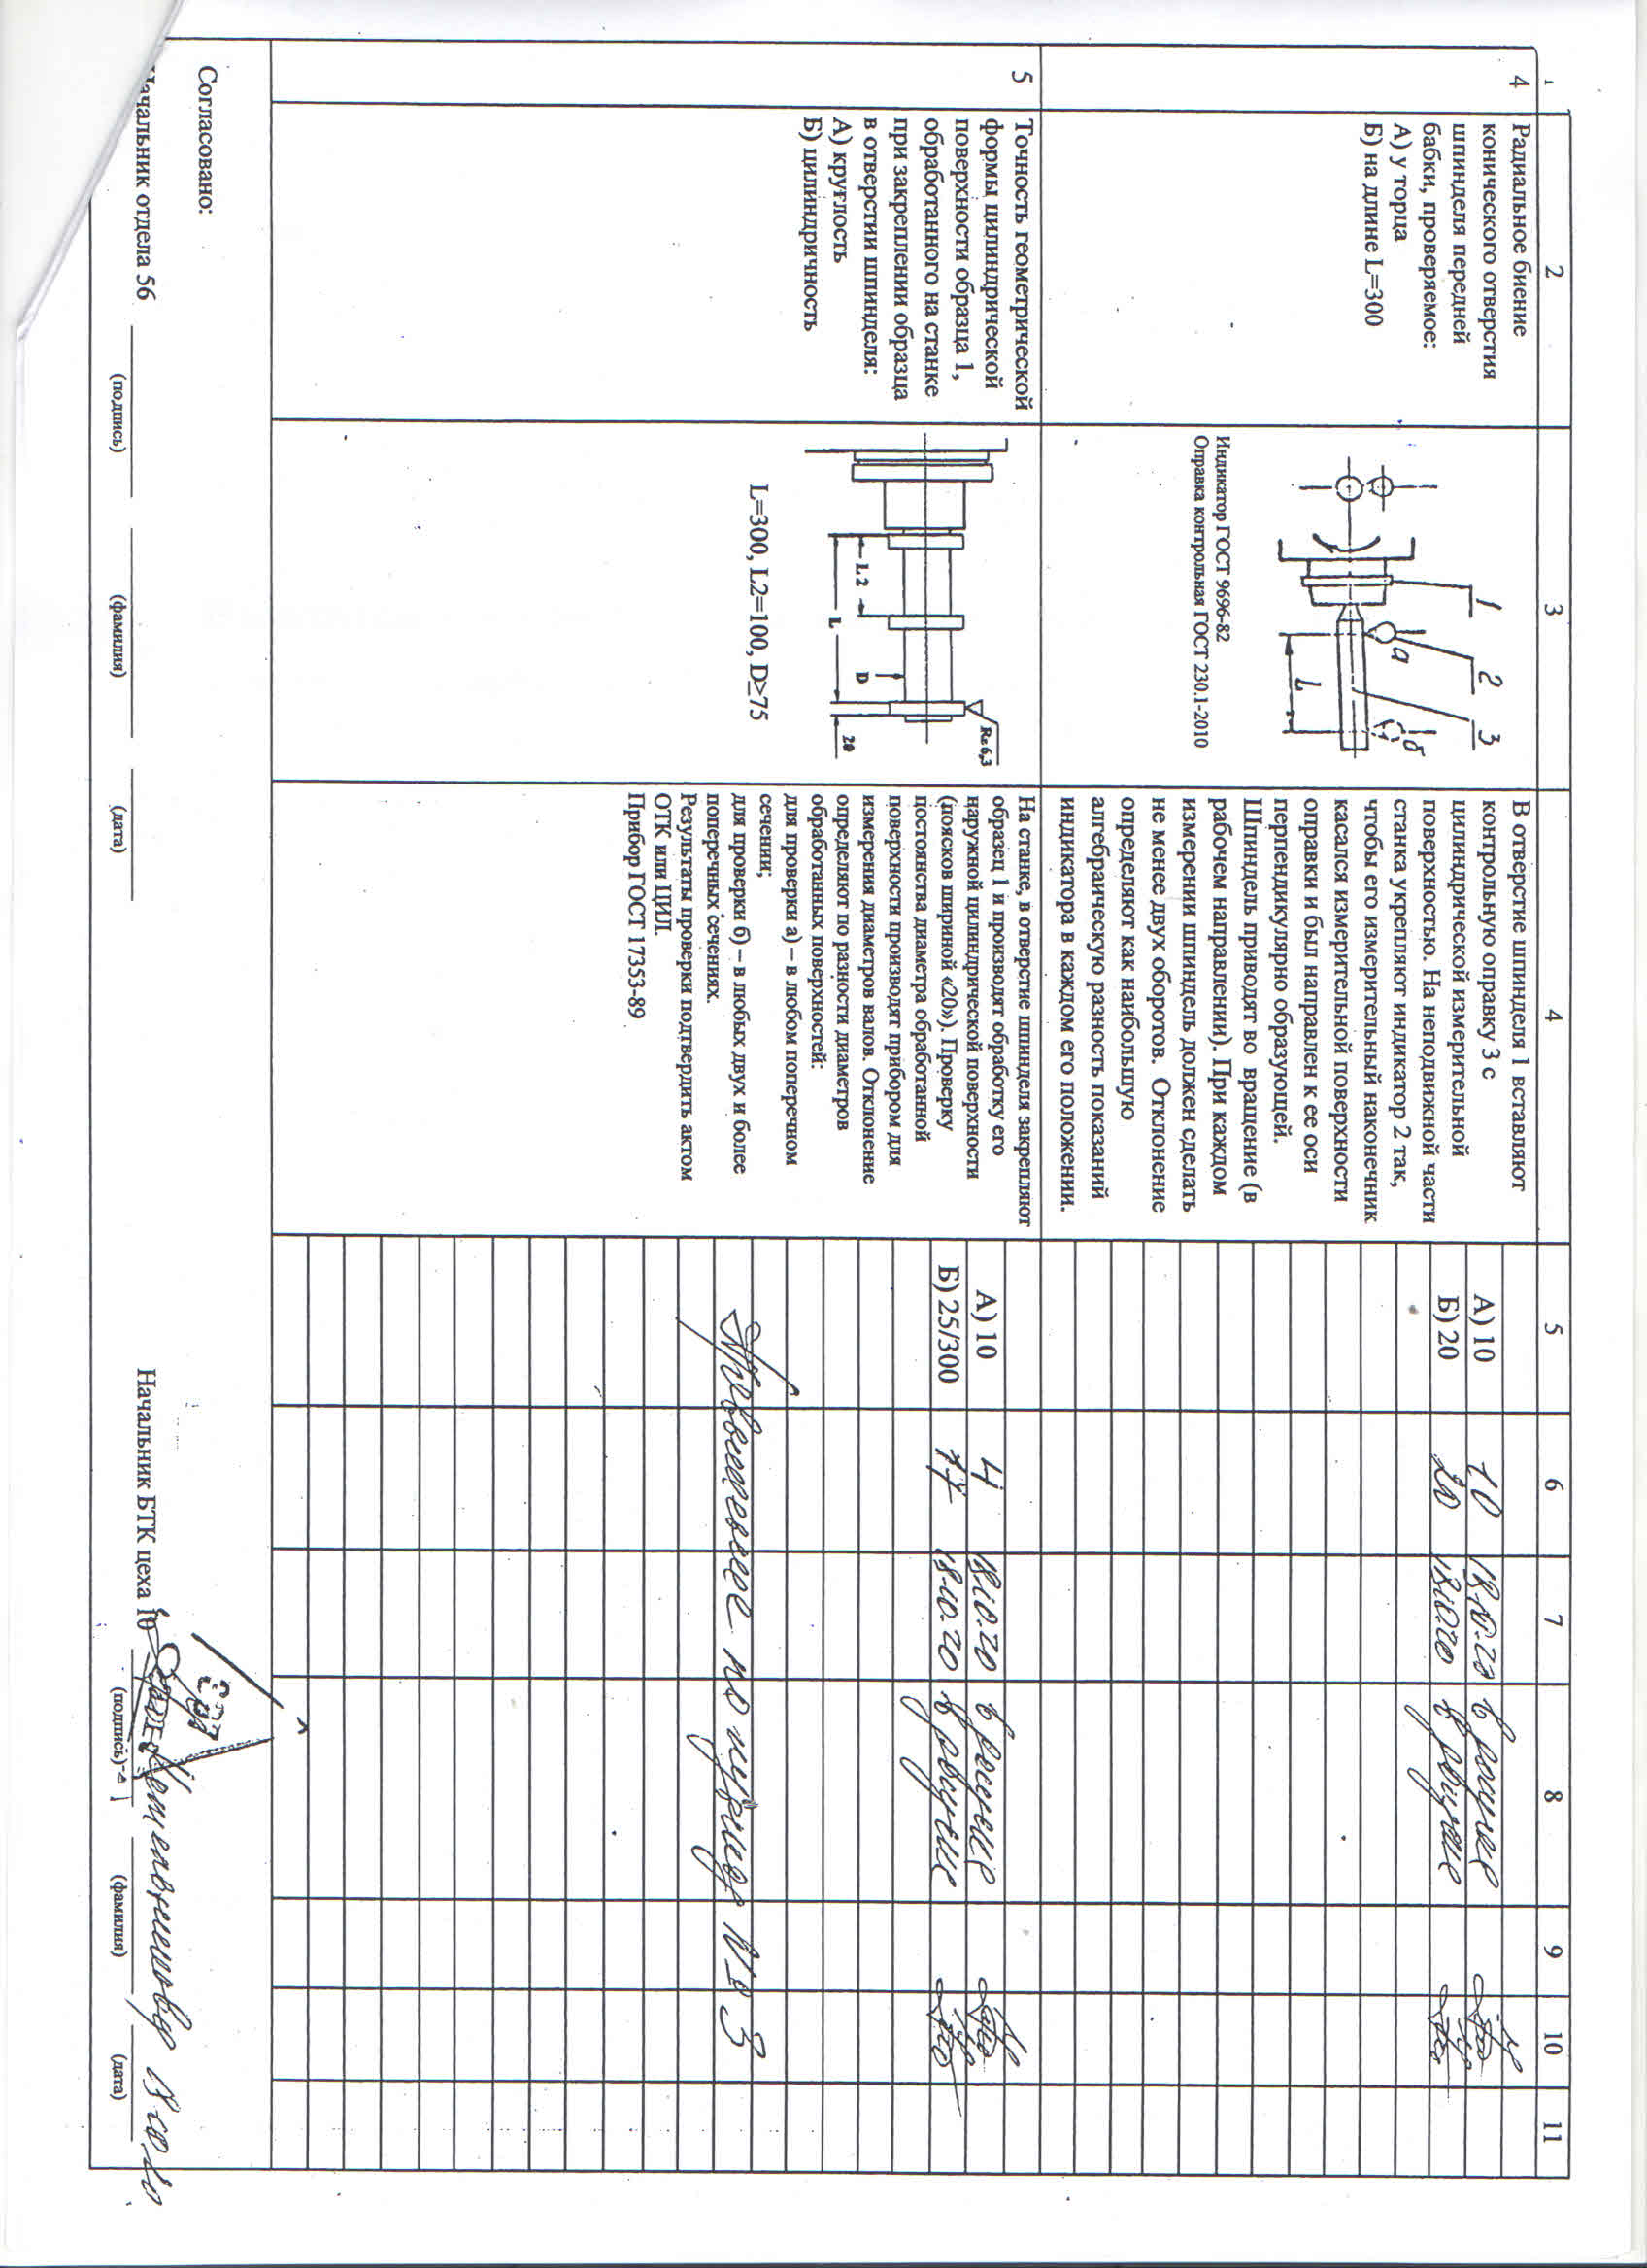 1 2 3 4 5 6 7 8 9 10 11
4
Радиальное биение
конического отверстия
шпинделя передней
бабки, проверяемое:
А) у торца
Б) на длине L=300
1 2 3
а
б
L
Индикатор ГОСТ 9696-82
Оправка контрольная ГОСТ 230.1-2010
В отверстие шпинделя 1 вставляют
контрольную оправку 3 с
цилиндрической измерительной
поверхностью. На неподвижной части
станка укрепляют индикатор 2 так,
чтобы его измерительный наконечник
касался измерительной поверхности
оправки и был направлен к ее оси
перпендикулярно образующей.
Шпиндель приводят во вращение (в
рабочем направлении). При каждом
измерении шпиндель должен сделать
не менее двух оборотов. Отклонение
определяют как наибольшую
алгебраическую разность показаний
индикатора в каждом его положении.
А) 10 10 13.10.20 в допуске
Б) 20 20 13.10.20 в допуске
5
Точность геометрической
формы цилиндрической
поверхности образца 1,
обработанного на станке
при закреплении образца
в отверстии шпинделя:
А) круглость
Б) цилиндричность
Rz 6,3
L2
D
L
20
L=300, L2=100, D≥75
На станке, в отверстие шпинделя закрепляют
образец 1 и производят обработку его
наружной цилиндрической поверхности
(поясков шириной «20»). Проверку
постоянства диаметра обработанной
поверхности производят прибором для
измерения диаметров валов. Отклонение
определяют по разности диаметров
обработанных поверхностей:
для проверки а) – в любом поперечном
сечении;
для проверки б) – в любых двух и более
поперечных сечениях.
Результаты проверки подтвердить актом
ОТК или ЦИЛ.
Прибор ГОСТ 17353-89
А) 10 4 13.10.20 в допуске
Б) 25/300 17 13.10.20 в допуске
Превышение по № 3
Согласовано:
Начальник отдела 56
(подпись) (фамилия) (дата)
Начальник БТК цеха 10 Котельникова 13.10.20
(подпись) (фамилия) (дата)